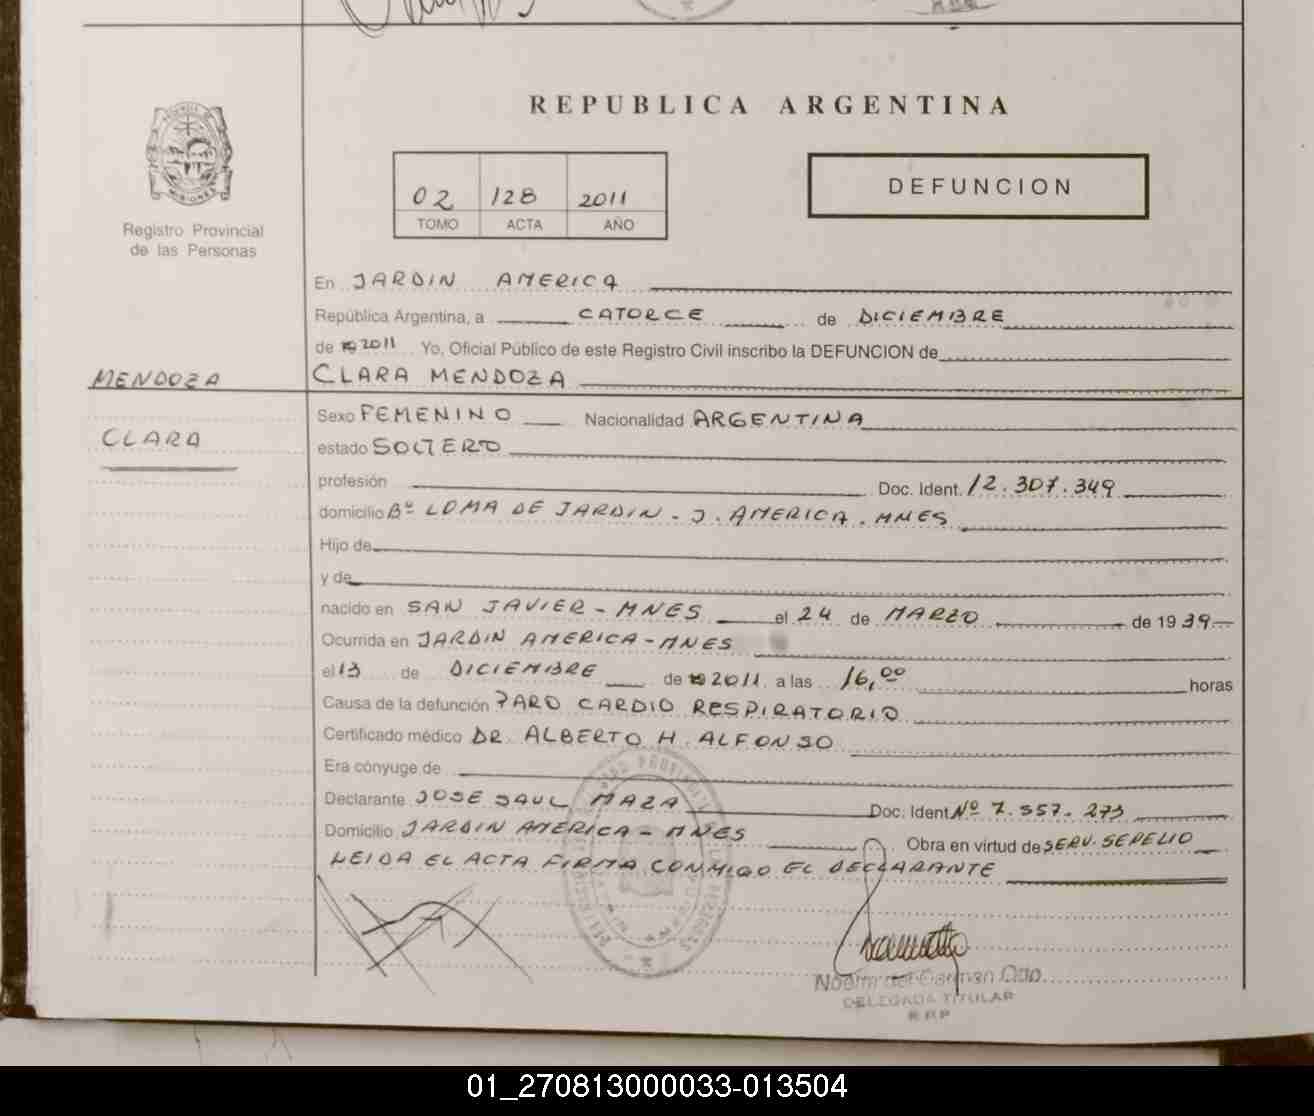 REPUBLICA ARGENTINA
MISIONES
Registro Provincial
de las Personas
02 128 2011
TOMO ACTA AÑO
DEFUNCION
En JARDIN AMERICA
República Argentina, a CATORCE de DICIEMBRE
de 2011 Yo, Oficial Público de este Registro Civil inscribo la DEFUNCION de
MENDOZA
CLARA
CLARA MENDOZA
Sexo FEMENINO Nacionalidad ARGENTINA
estado SOLTERO
profesión Doc. Ident. 12.307.349
domicilio Bº LOMA DE JARDIN - J. AMERICA. MNES
Hijo de
y de
nacido en SAN JAVIER - MNES el 24 de MARZO de 1939
Ocurrida en JARDIN AMERICA - MNES
el 13 de DICIEMBRE de 2011 a las 16,00 horas
Causa de la defunción PARO CARDIO RESPIRATORIO
Certificado médico DR. ALBERTO H. ALFONSO
Era cónyuge de
Declarante JOSE SAUL MAZA Doc. Ident Nº 7.557.273
Domicilio JARDIN AMERICA - MNES Obra en virtud de SERV. SEPELIO
LEIDA EL ACTA FIRMA CONMIGO EL DECLARANTE
DELEGADA TITULAR
01_270813000033-013504